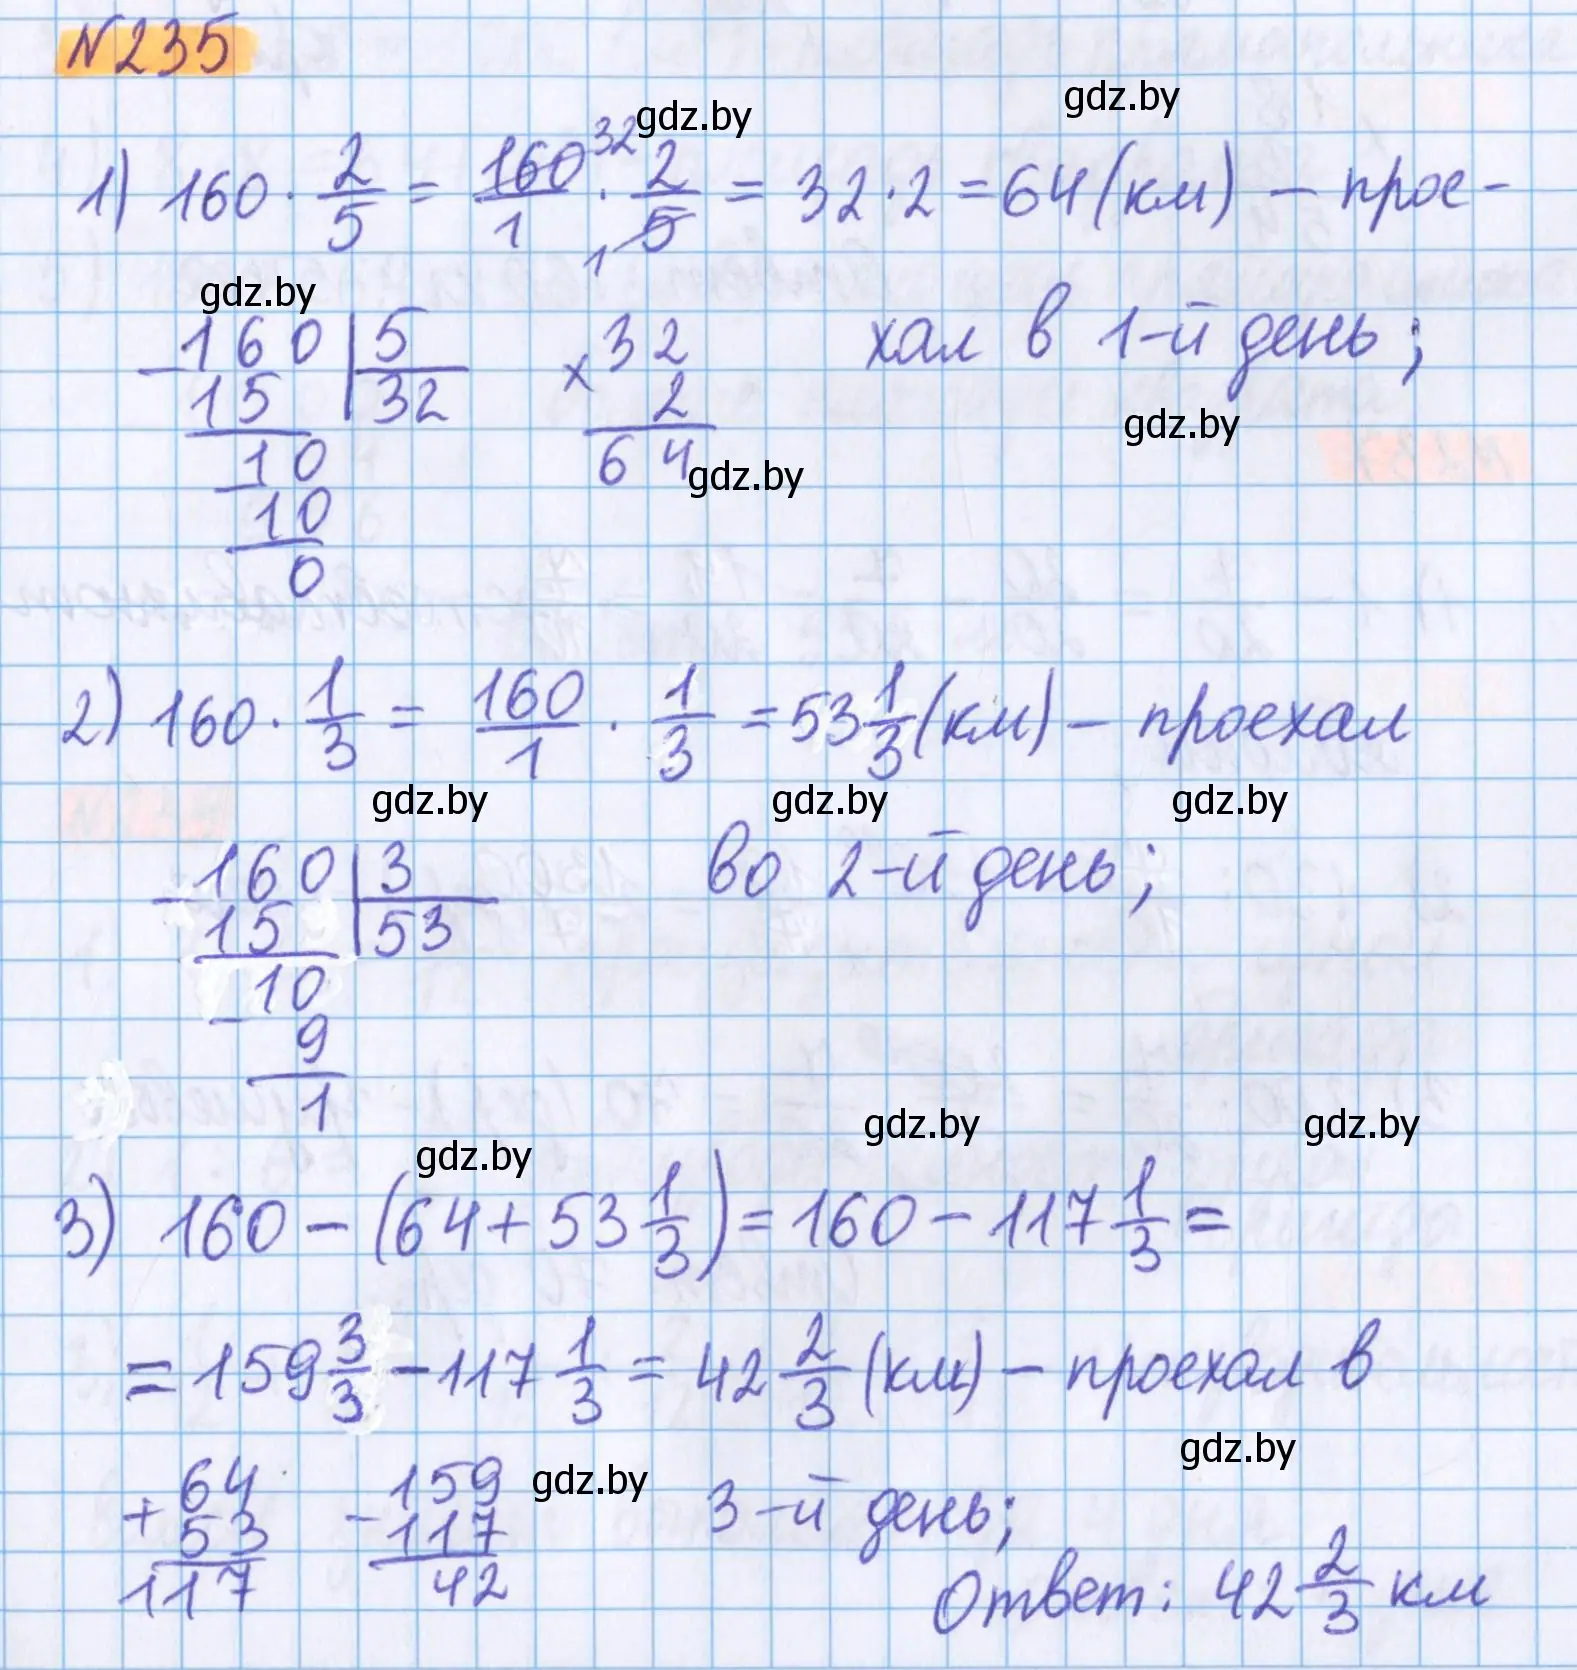 N235
gdz.by
gdz.by
1) 160 · 2/5 = 160/1 ³² · 2/5 ₁ = 32 · 2 = 64 (км) – прое-
gdz.by
хал в 1-й день;
160 | 5
– 15 | 32
10
– 10
0
32
× 2
64
gdz.by
gdz.by
2) 160 · 1/3 = 160/1 · 1/3 = 53 1/3 (км) – проехал
gdz.by
gdz.by
gdz.by
во 2-й день;
160 | 3
– 15 | 53
10
– 9
1
gdz.by
gdz.by
gdz.by
3) 160 – (64 + 53 1/3) = 160 – 117 1/3 =
= 159 3/3 – 117 1/3 = 42 2/3 (км) – проехал в
gdz.by
gdz.by
3-й день;
64
+ 53
117
159
– 117
42
Ответ: 42 2/3 км